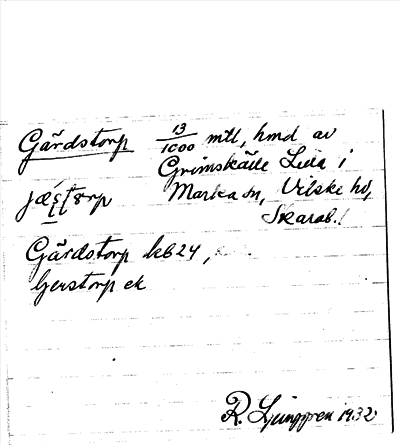 Gärdstorp 13/1000 mtl, hmd av
Grimskälle Lilla i
Marka sn, Vilske hd,
Skarab.l.
Gärdstorp kb24,
Gerstorp ek
R. Ljunggren 1932